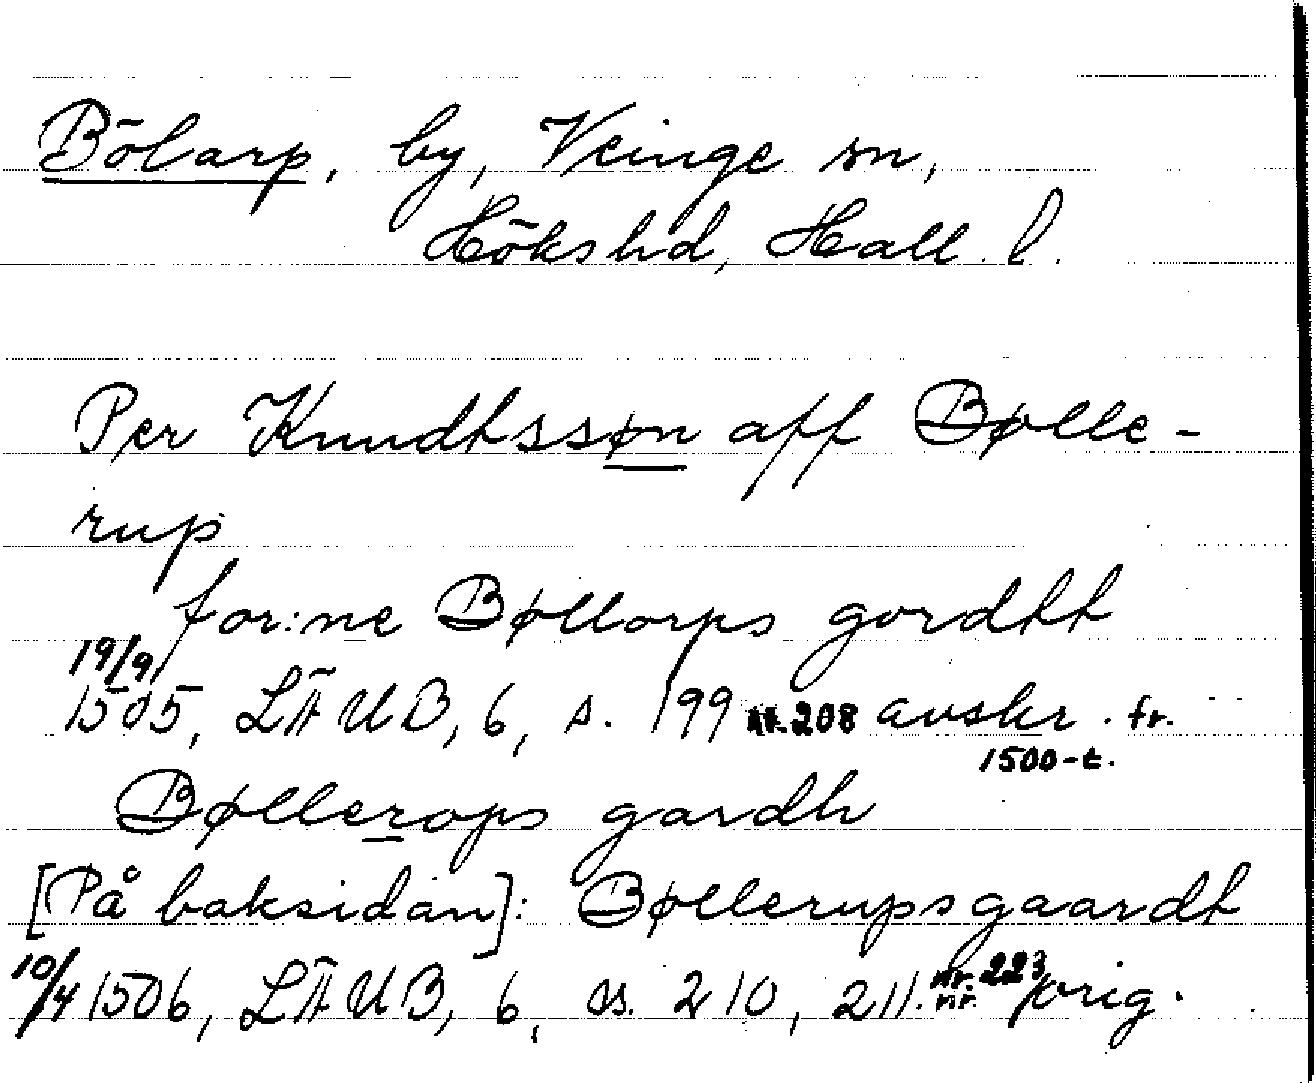 Bölarp, by, Veinge sn,
Hökshd, Hall. l.
Per Knudtssøn aff Bølle-
rup
for:ne Bøllorps gordtt
19/9 1505, LÄUB, 6, s. 199 nr. 208 avskr. fr.
1500-t.
Bøllerops gardh
[På baksidan]: Bøllerupsgaardt
10/4 1506, LÄUB, 6, ss. 210, 211. nr. nr. 223 orig.